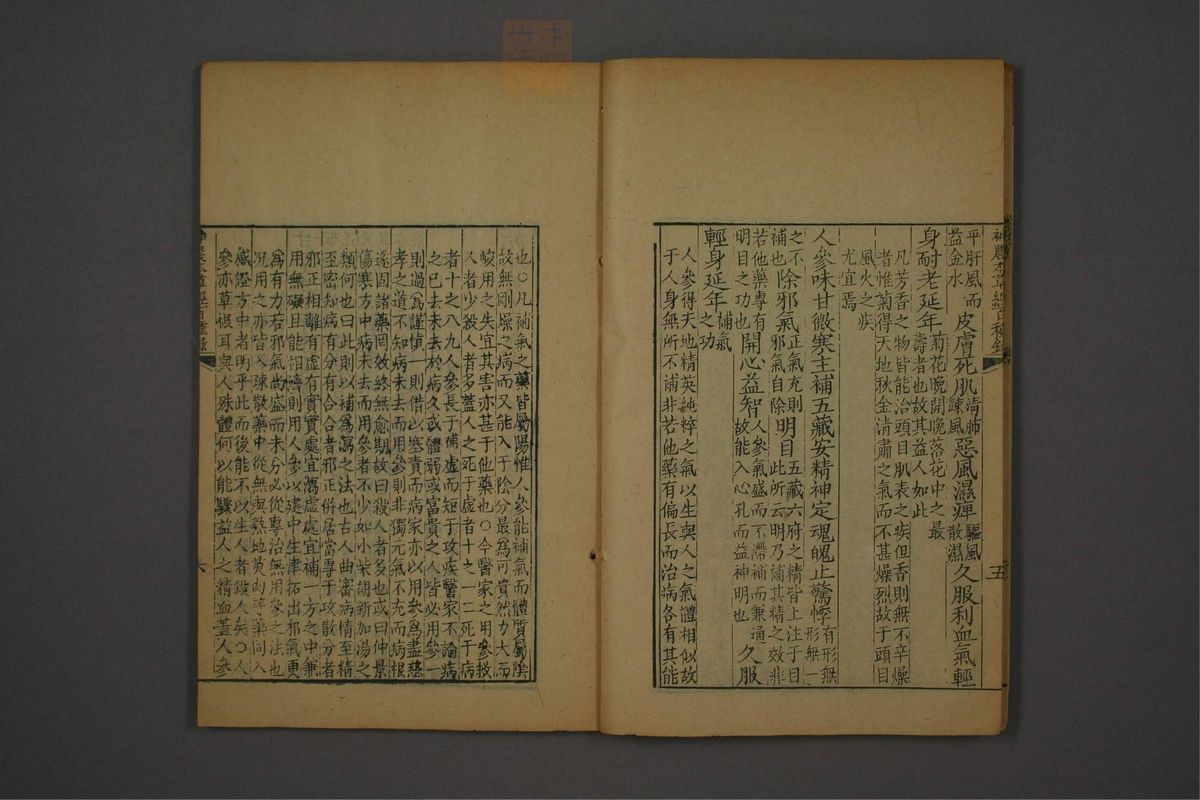 神農本草經百種錄 五
平肝風而益金水皮膚死肌清肺疎風惡風濕痺驅風散濕久服利血氣輕
身耐老延年菊花晚開晚落花中之最壽者也故其益人如此
凡芳香之物皆能治頭目肌表之疾但香則無不辛燥
者惟菊得天地秋金清肅之氣而不甚燥烈故于頭目
風火之疾
尤宜焉
人參味甘微寒主補五藏安精神定魂魄止驚悸有形無形無一
之不補也除邪氣正氣充則邪氣自除明目五藏六府之精皆上注于目此所云明乃補其精之效非
若他藥專有明目之功也開心益智人參氣盛而不滯補而兼通故能入心孔而益神明也久服
輕身延年補氣之功
人參得天地精英純粹之氣以生與人之氣體相似故
于人身無所不補非若他藥有偏長而治病各有其能
也〇凡補氣之藥皆屬陽惟人參能補氣而體質屬陰
故無剛燥之病而又能入于陰分最為可貴然力大而
峻用之失宜其害亦甚于他藥也〇今醫家之用參救
人者少殺人者多蓋人之死于虛者十之一二死于病
者十之八九人參長于補虛而短于攻疾醫家不論病
之已去未去於病久或體弱或富貴之人皆必用參一
則過為謹慎一則借以塞責而病家亦以用參為盡慈
孝之道不知病未去而用參則非獨元氣不充而病根
遂固諸藥罔效終無愈期故曰殺人者多也或曰仲景
傷寒方中病未去而用參者不少如小柴胡新加湯之
類何也曰此則以補為瀉之法也古人曲審病情至精
至密知病有分有合合者邪正併居當專于攻散分者
邪正相離有虛有實實處宜瀉虛處宜補一方之中兼
用無礙且能相濟則用人參以建中生津拓出邪氣更
為有力若邪氣尚盛而未分必從專治無用參之法也
況用之亦皆入疎散藥中從無與熟地萸肉等藥同入
感證方中者明乎此而後能不以生人者殺人矣〇人
參亦草根耳與人殊體何以能驟益人之精血蓋人參
神農本草經百種錄 六